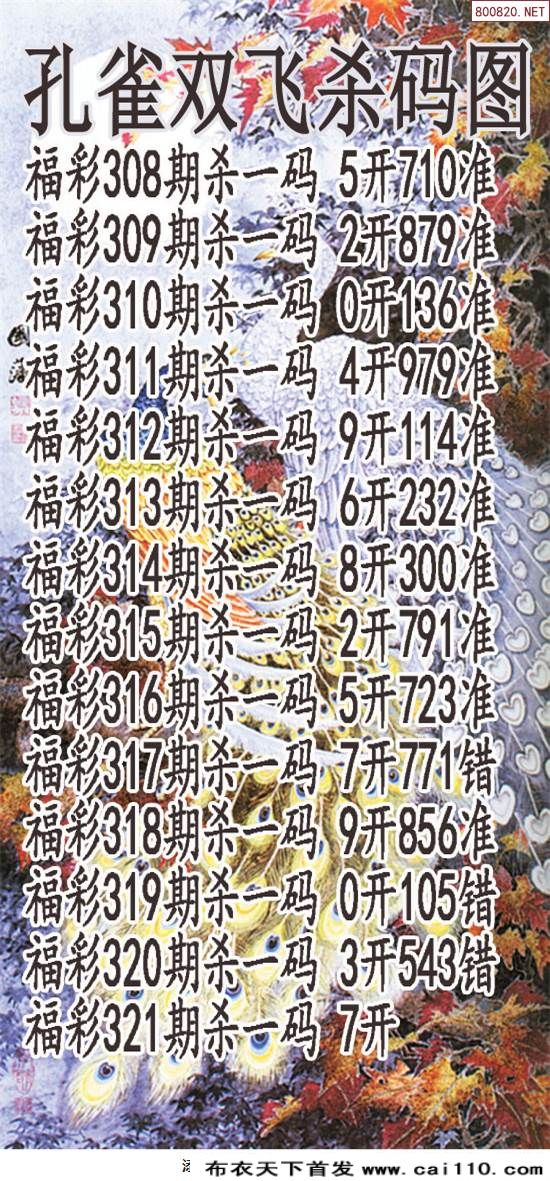 800820.NET
孔雀双飞杀码图
福彩308期杀一码 5开710准
福彩309期杀一码 2开879准
福彩310期杀一码 0开136准
福彩311期杀一码 4开979准
福彩312期杀一码 9开114准
福彩313期杀一码 6开232准
福彩314期杀一码 8开300准
福彩315期杀一码 2开791准
福彩316期杀一码 5开723准
福彩317期杀一码 7开771错
福彩318期杀一码 9开856准
福彩319期杀一码 0开105错
福彩320期杀一码 3开543错
福彩321期杀一码 7开
布衣天下首发 www.cai110.com